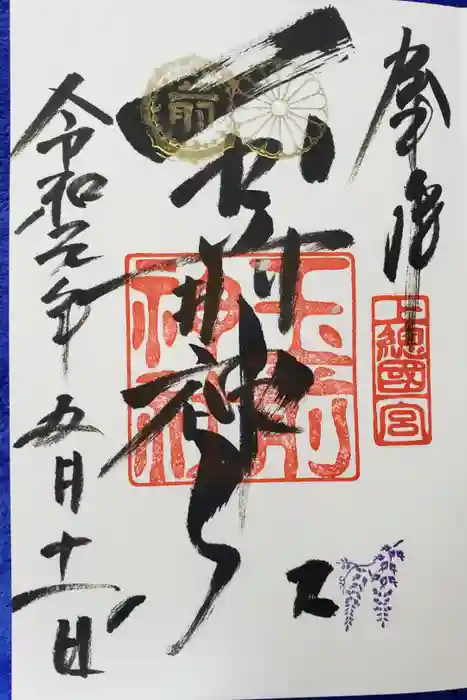 奉拝
上總國一宮
前
玉前神社
玉前神社
令和元年五月十一日